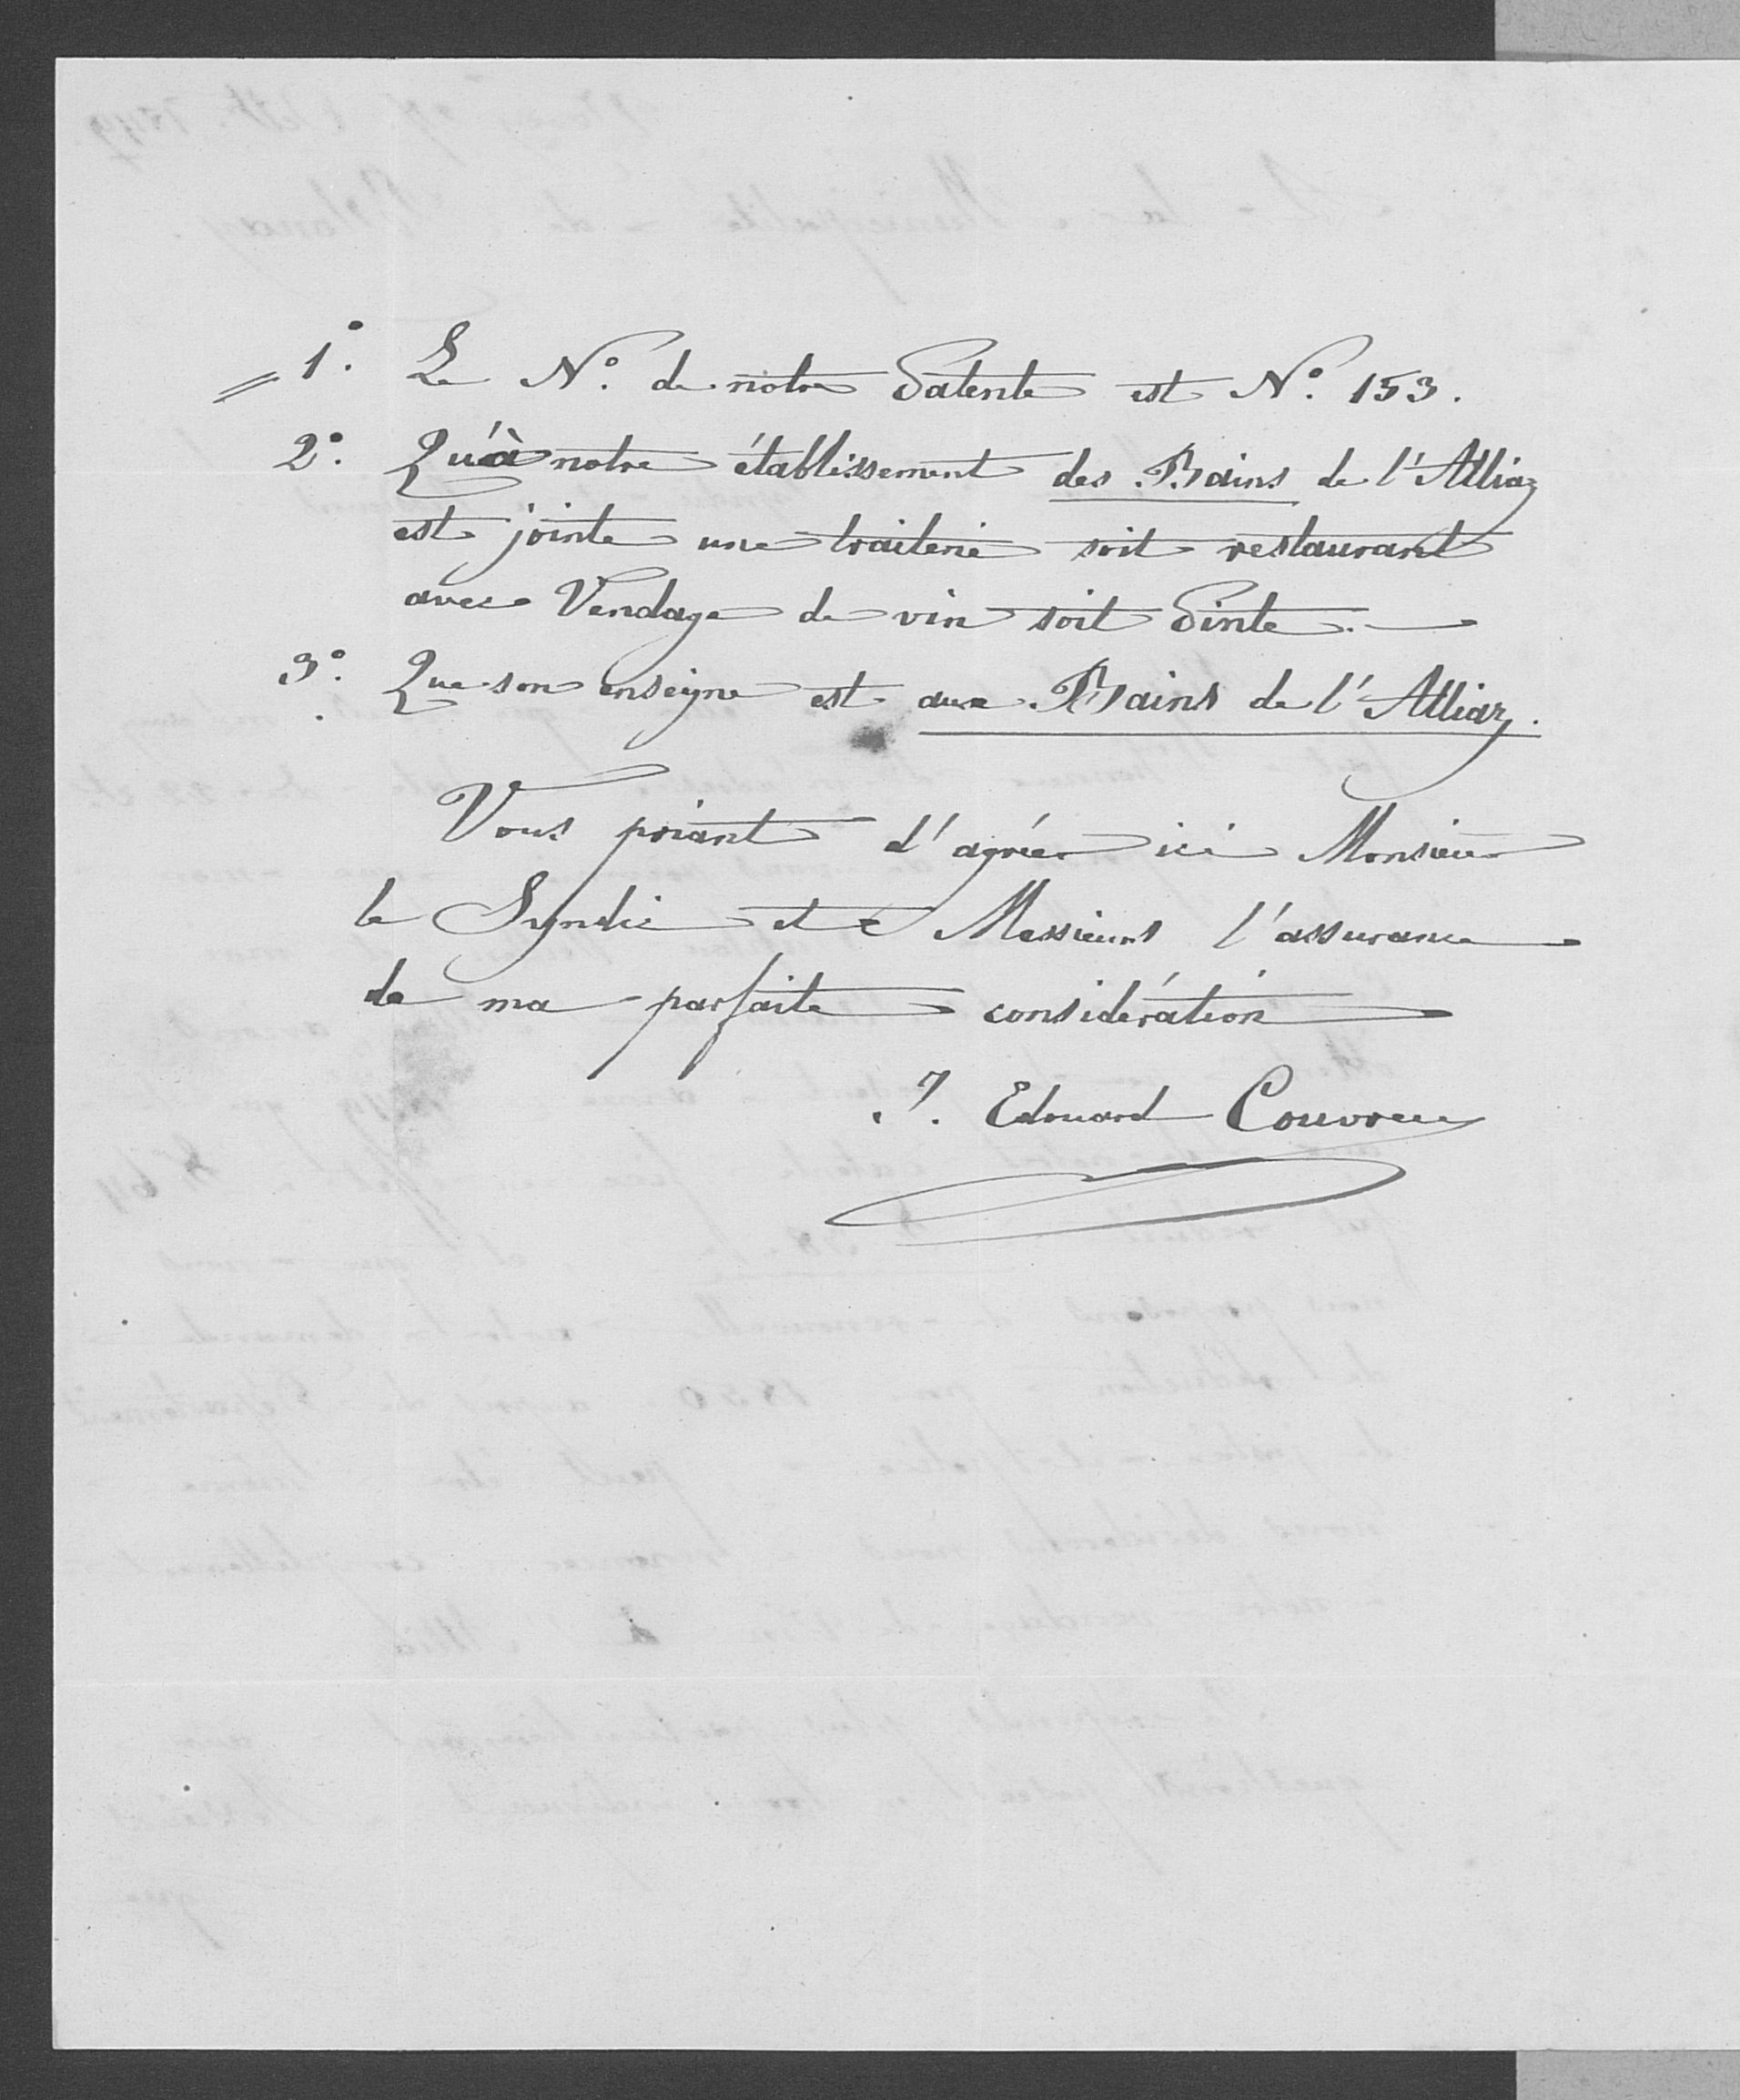 1° Le N° de notre Patente est N° 153.
2° Qu'à notre établissement des Bains de l'Alliaz
est jointe une traiterie soit restaurant
avec Vendage de vin soit Pinte.
3° Que son enseigne est aux Bains de l'Alliaz.
Vous priant d'agréer ici Monsieur
le Syndic et Messieurs l'assurance
de ma parfaite considération
J. Edouard Couvreu